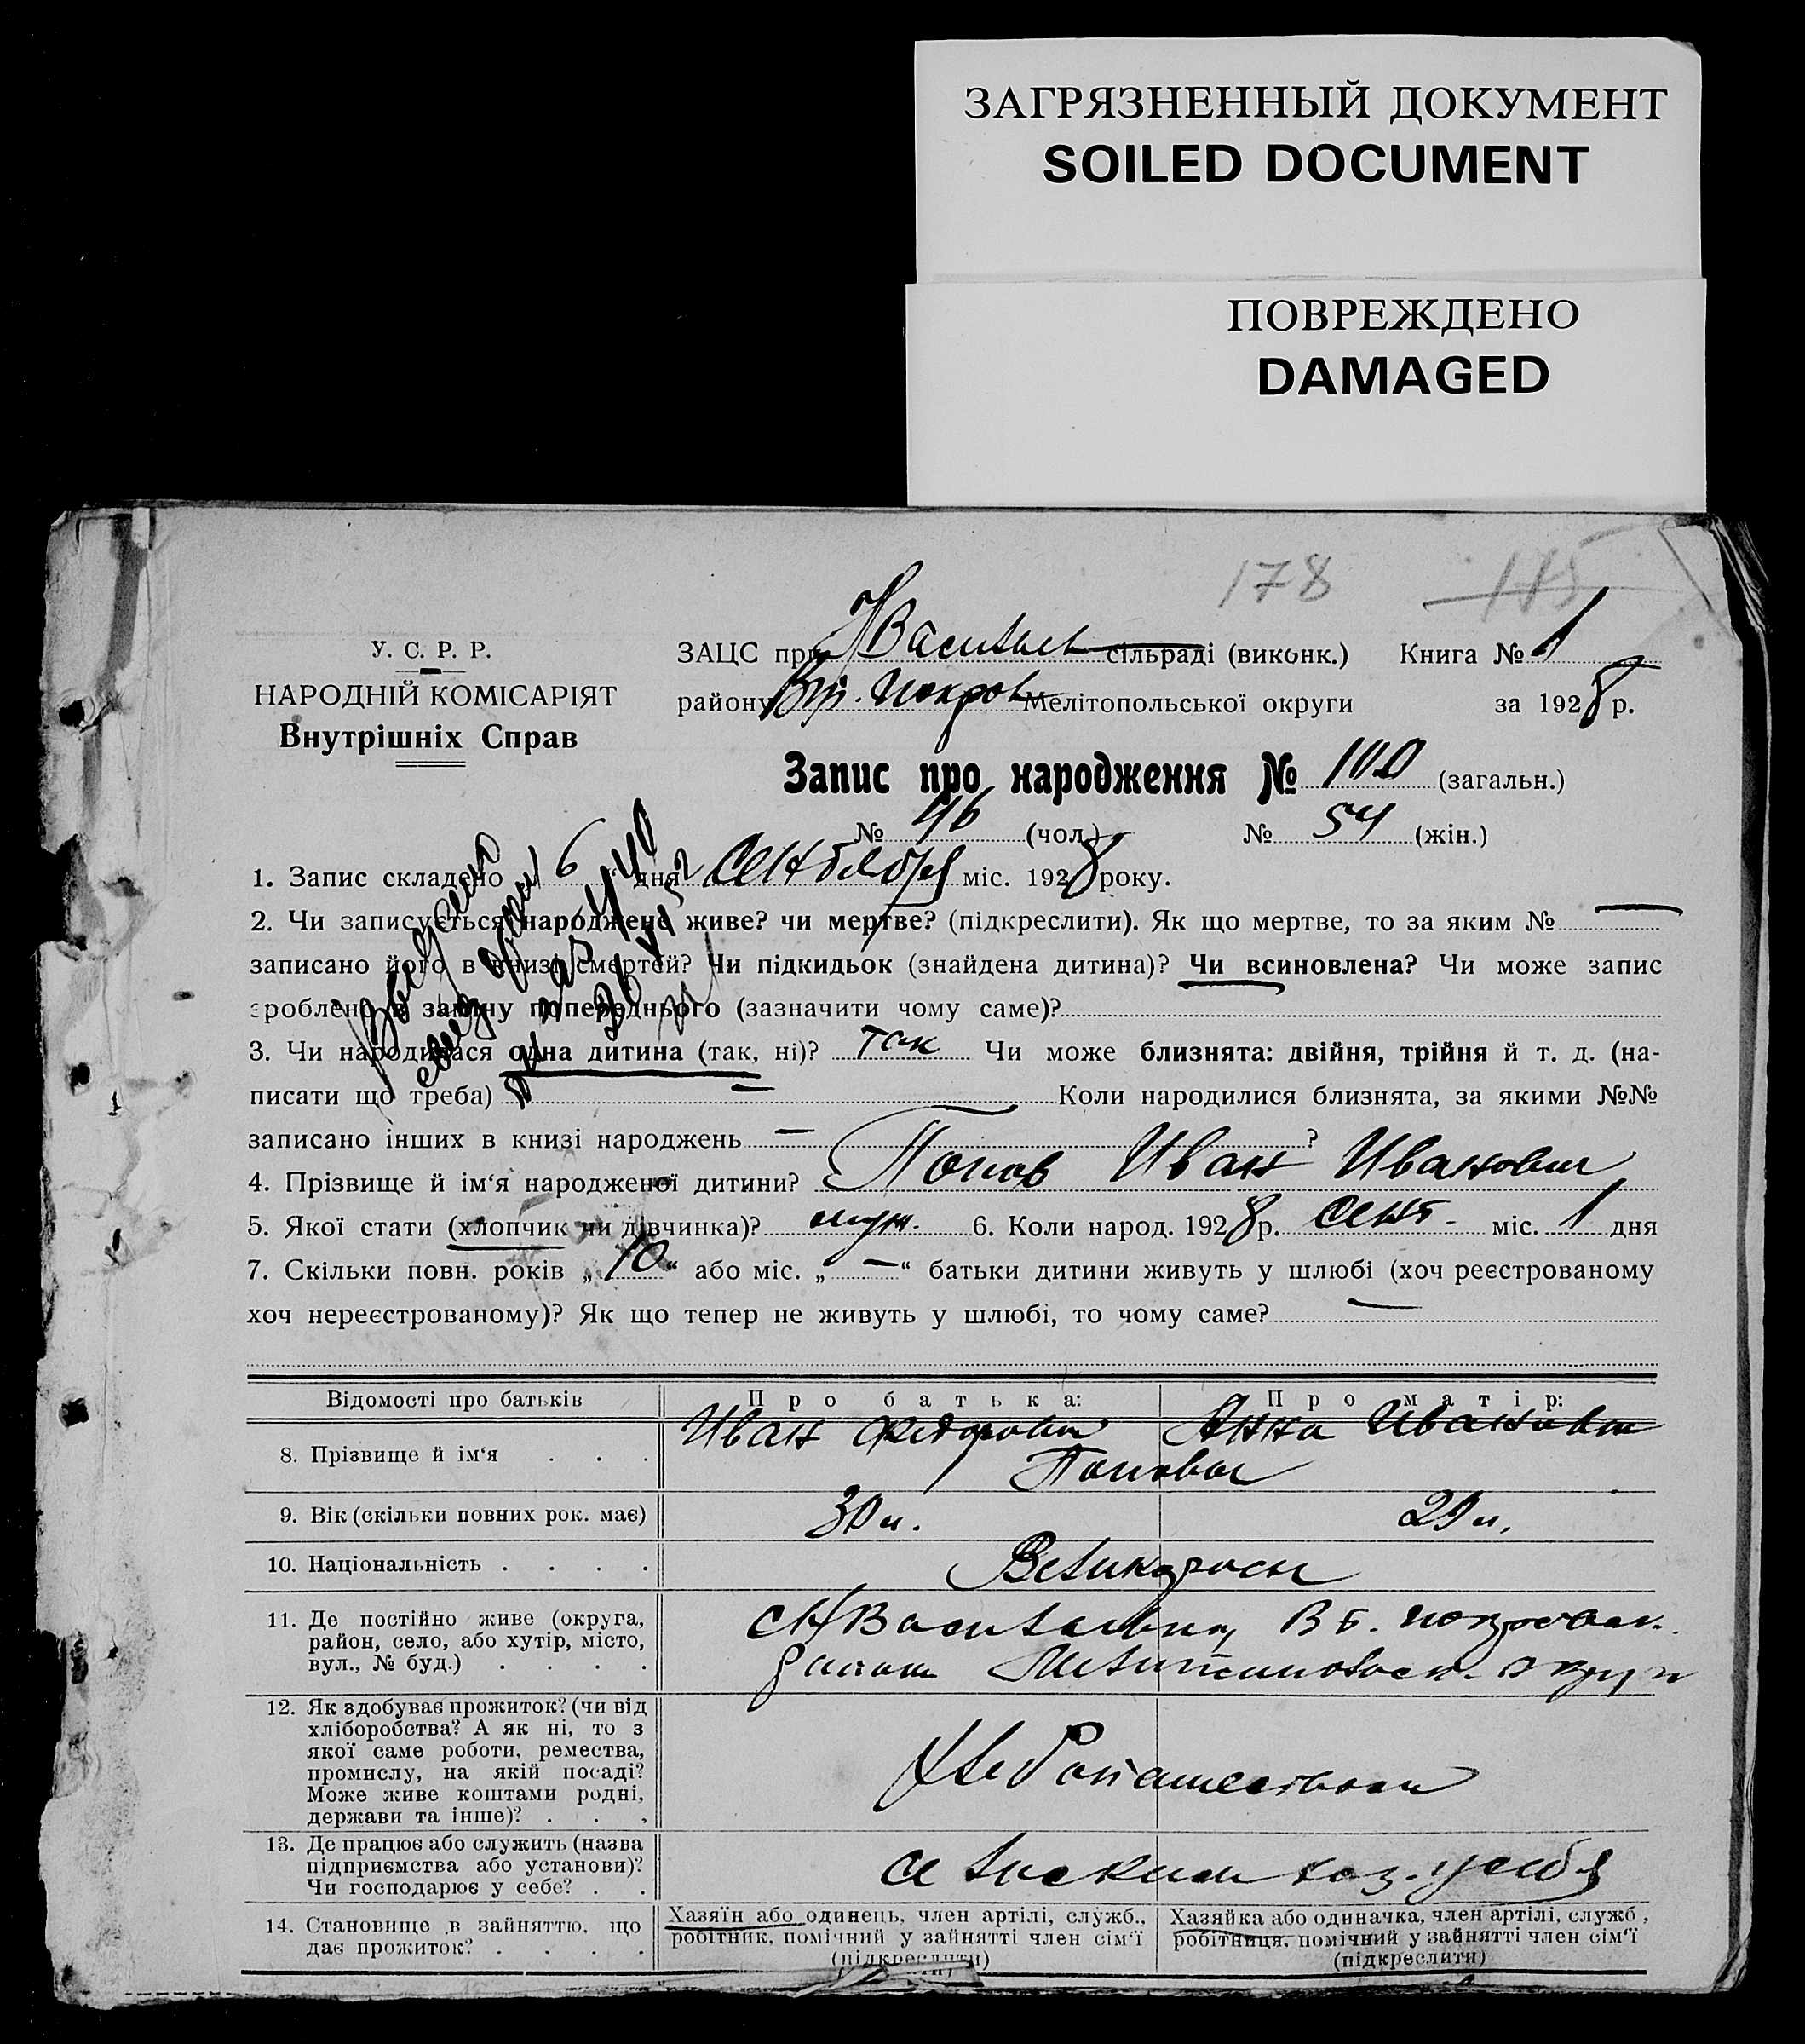 ЗАГРЯЗНЕННЫЙ ДОКУМЕНТ
SOILED DOCUMENT
ПОВРЕЖДЕНО
DAMAGED
178 175
У. С. Р. Р.
НАРОДНІЙ КОМІСАРІЯТ
Внутрішніх Справ
ЗАЦС при Н Васильев сільраді (виконк.) Книга № 1
району Вт. Покров Мелітопольської округи за 1928 р.
Запис про народження № 100 (загальн.)
№ 46 (чол.) № 54 (жін.)
1. Запис складено „ 6 “ дня Сентября міс. 1928 року.
2. Чи записується народжене живе? чи мертве? (підкреслити). Як що мертве, то за яким № —
записано його в книзі смертей? Чи підкидьок (знайдена дитина)? Чи всиновлена? Чи може запис
зроблено в заміну попереднього (зазначити чому саме)?
3. Чи народилася одна дитина (так, ні)? так Чи може близнята: двійня, трійня й т. д. (на-
писати що треба) — Коли народилися близнята, за якими №№
записано інших в книзі народжень — ?
4. Прізвище й ім‘я народженої дитини? Попов Иван Иванович
5. Якої стати (хлопчик чи дівчинка)? муж. 6. Коли народ. 1928 р. Сент. міс. 1 дня
7. Скільки повн. років „ 10 “ або міс. „ — “ батьки дитини живуть у шлюбі (хоч реєстрованому
хоч нереєстрованому)? Як що тепер не живуть у шлюбі, то чому саме? —
Відомості про батьків Про батька: Про матір:
8. Прізвище й ім‘я . . . Иван Федорович Анна Ивановна
Поповы
9. Вік (скільки повних рок. має) 30 л. 29 л.
10. Національність . . . . Великороссы
11. Де постійно живе (округа,
район, село, або хутір, місто,
вул., № буд.) . . . .
с Н Васильевка, Вт. Покровск.
района Мелитопольск. округи
12. Як здобуває прожиток? (чи від
хліборобства? А як ні, то з
якої саме роботи, ремества,
промислу, на якій посаді?
Може живе коштами родні,
держави та інше)? . . .
Хлебопашеством
13. Де працює або служить (назва
підприємства або установи)?
Чи господарює у себе? . .
сельском хоз. у себя
14. Становище в зайняттю, що
дає прожиток? . . . .
Хазяїн або одинець, член артілі, служб.,
робітник, помічний у зайнятті член сім‘ї
(підкреслити)
Хазяйка або одиначка, член артілі, служб.,
робітниця, помічний у зайнятті член сім‘ї
(підкреслити)